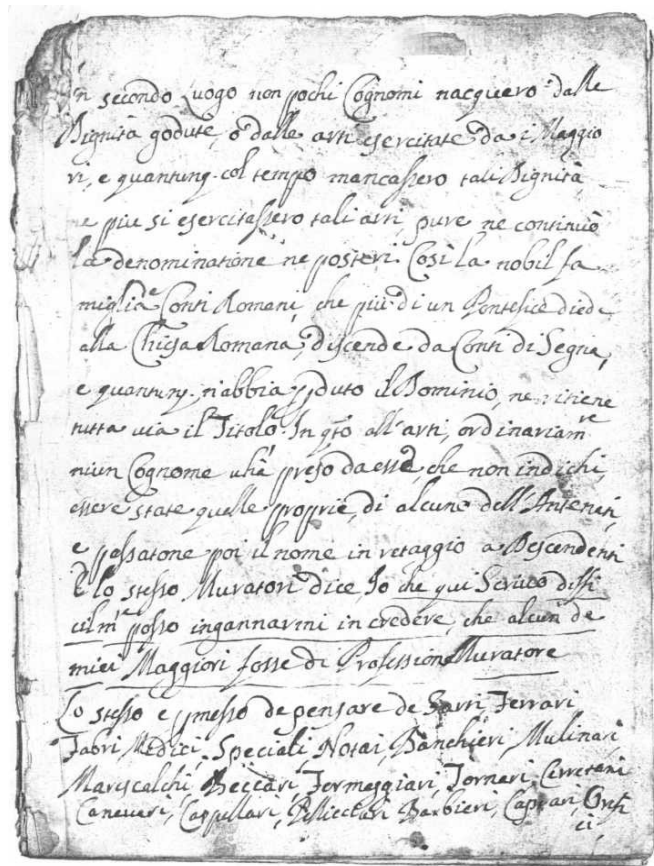 In secondo Luogo non pochi Cognomi nacquero dalle
Dignità godute, ò dalle arti esercitate da i Maggio
ri, e quantunq. col tempo mancassero tali Dignità,
ne piu si esercitassero tali arti, pure ne continuò
la denominatione ne posteri. Così la nobil fa
miglia Conti Romani, che piu di un Pontefice diede
alla Chiesa Romana, discende da Conti di Segna,
e quantunq. n'abbia pduto il Dominio, ne ritiene
tutta via il Titolo. In qto all'arti, ordinariamte
niun Cognome v'hà preso da esse, che non indichi,
essere state quelle proprie di alcuno dell'Antenati,
e passatone poi il nome in retaggio a Descendenti
E lo stesso Muratori dice, Io che qui Scrivo diffi
cilmte posso ingannarmi in credere, che alcun de
miei Maggiori fosse di Professione Muratore
Lo stesso e pmesso de pensare de Sarri, Ferrari
Fabri, Medici, Speciali, Notai, Banchieri, Mulinari
Marescalchi, Beccari, Formaggiari, Fornari, Cerretani
Caneveri, Cappellari, Pellicciari Barbieri, Caprari, Orefi
ci